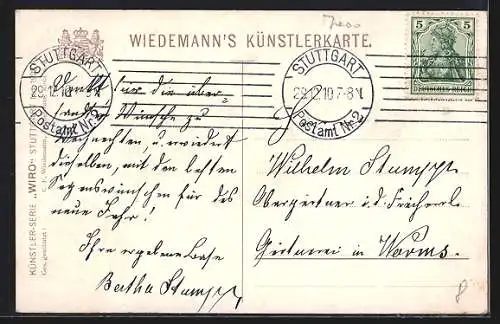 Jess
WIEDEMANN'S KÜNSTLERKARTE.
5 5
DEUTSCHES REICH
STUTTGART
29.12.10.
Postamt Nr. 2
STUTTGART
29.12.10.7-8N.
Postamt Nr. 2
KÜNSTLER-SERIE „WIRO" STUTTGART
Ges. geschützt!
Dankt für die über-
sandten Wünsche zu
Weihnachten, und erwiedert
dieselben, mit den besten
Segenswünschen für das
neue Jahr!
Ihre ergebene Base
Bertha Stumpp
Wilhelm Stumpp
Obergärtner i. d. Freiherrl.
Gärtnerei in Worms.